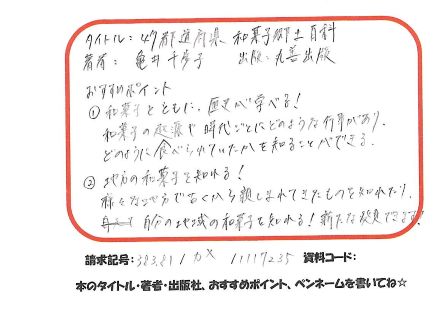 タイトル：47都道府県 和菓子郷土百科
著者：亀井千歩子 出版：丸善出版
おすすめポイント
① 和菓子とともに、歴史が学べる！
和菓子の起源や時代ごとにどのような行事があり、
どのように食べられていたかを知ることができる。
② 地方の和菓子を知れる！
様々な地方で古くから親しまれてきたものを知れたり、
自分の地域の和菓子を知れる！新たな発見できます！
請求記号：383.81 / カメ / 11117235 資料コード：
本のタイトル・著者・出版社、おすすめポイント、ペンネームを書いてね☆